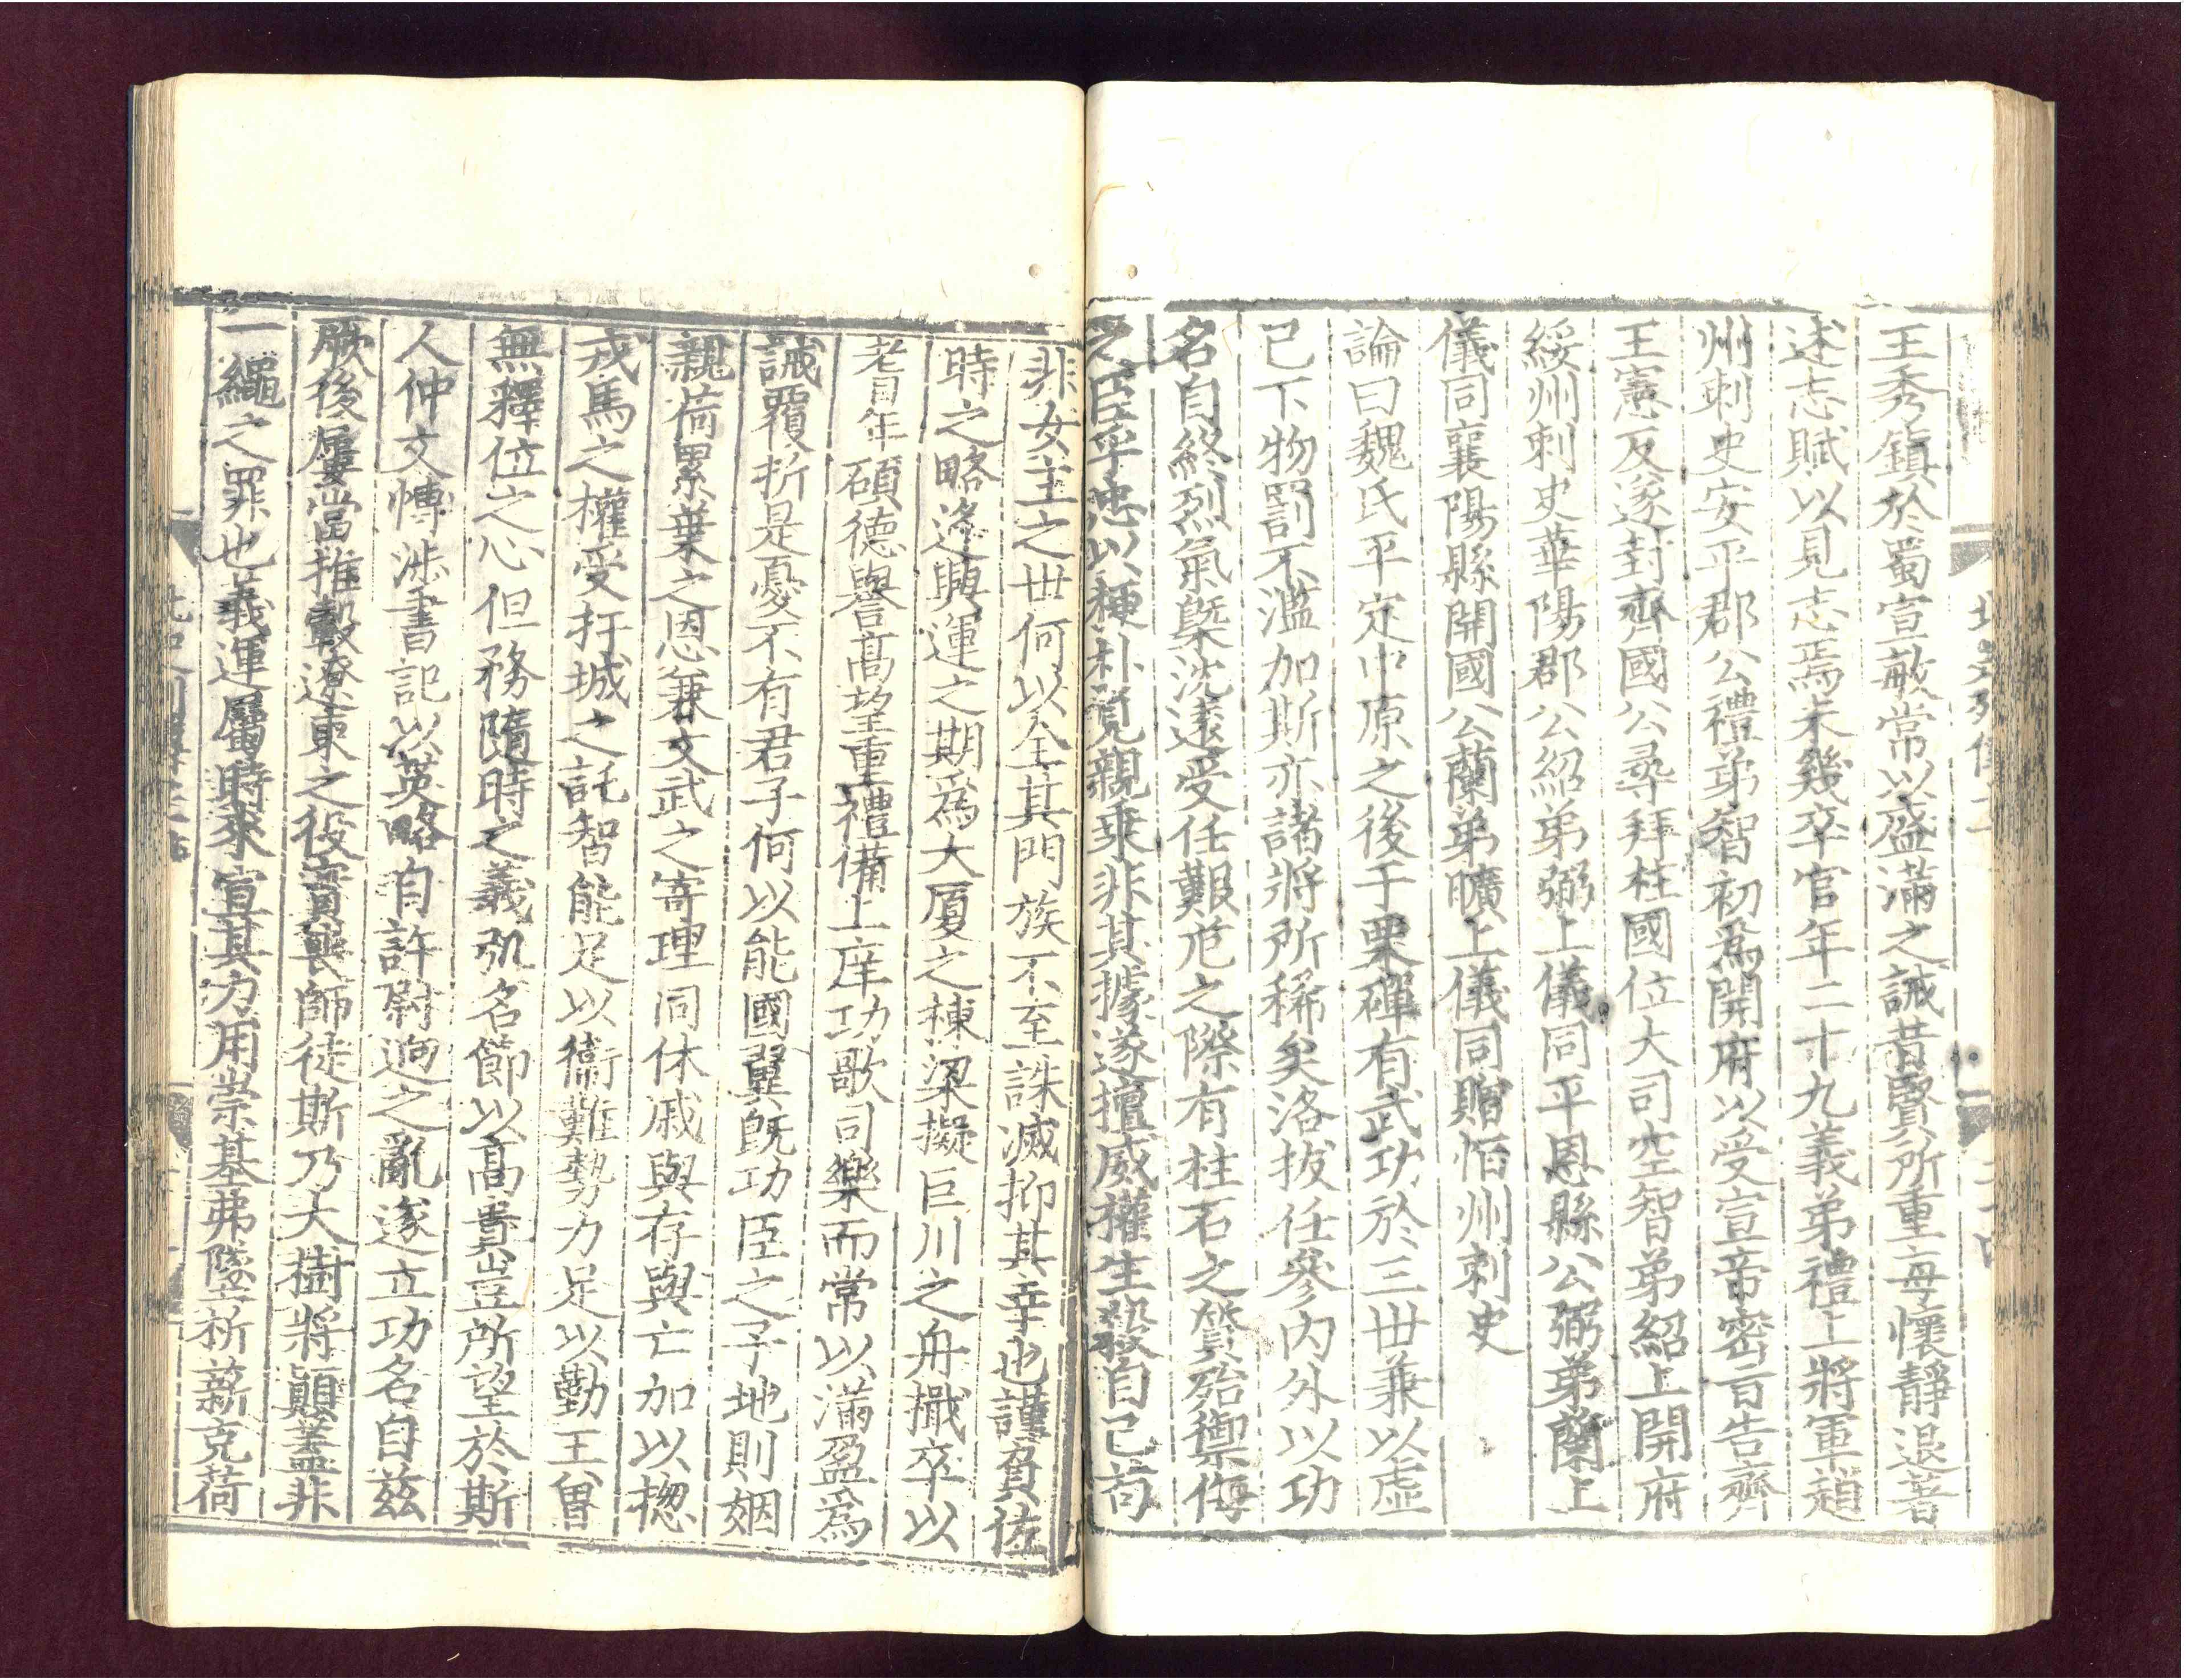 王秀鎮於蜀宣敏常以盛滿之誡昔賢所重每懷靜退著
述志賦以見志焉未幾卒官年二十九義弟禮上將軍趙
州刺史安平郡公禮弟智初爲開府以受宣帝密旨告齊
王憲反遂封齊國公尋拜柱國位大司空智弟紹上開府
綏州刺史華陽郡公紹弟弼上儀同平恩縣公弼弟蘭上
儀同襄陽縣開國公蘭弟曠上儀同贈恒州刺史
論曰魏氏平定中原之後于栗磾有武功於三世兼以虛
己下物罰不濫加斯亦諸將所稀矣洛拔任參內外以功
名自終烈氣槩沈遠受任艱危之際有柱石之質殆禦侮
之臣乎忠以梗朴見親乗非其據遂擅威權生殺自己苟
非女主之世何以全其門族不至誅滅抑其幸也謹負佐
時之略逢興運之期爲大厦之棟梁擬巨川之舟檝卒以
耆年碩德譽高望重禮備上庠功歌司樂而常以滿盈爲
誡覆折是憂不有君子何以能國翼旣功臣之子地則姻
親荷累葉之恩兼文武之寄理同休戚與存與亡加以揔
戎馬之權受扞城之託智能足以衞難勢力足以勤王曾
無釋位之心但務隨時之義弘名節以高貴豈所望於斯
人仲文愽涉書記以英略自許尉迥之亂遂立功名自兹
厥後屢當推轂遼東之役實喪師徒斯乃大樹將顛蓋非
一繩之罪也義運屬時來宣其力用崇基弗墜析薪克荷